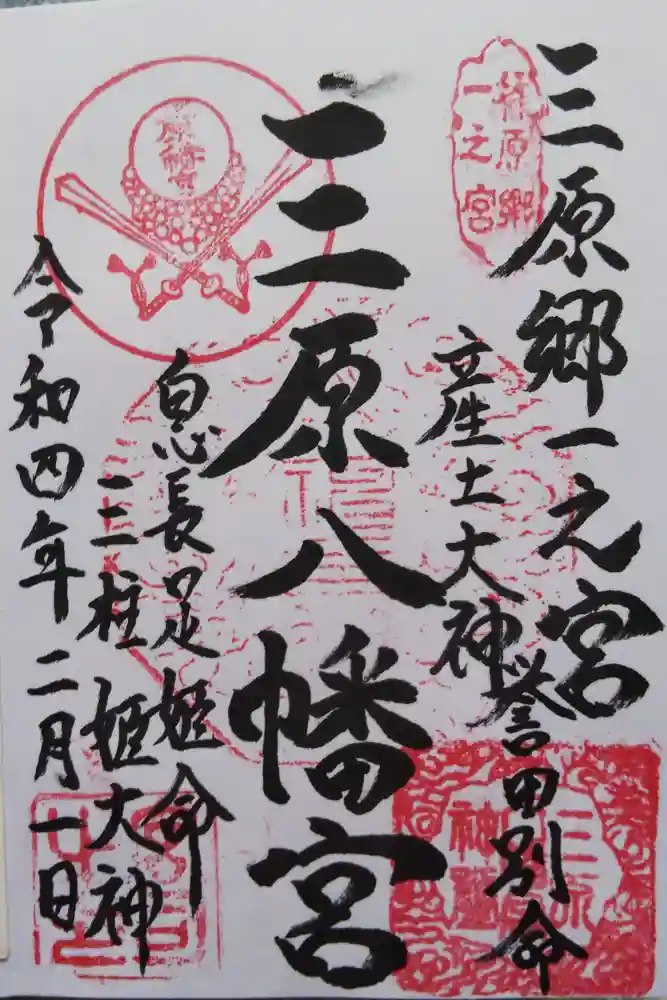 三原郷一之宮
産土大神
誉田別命
三原八幡宮
息長足姫命
三柱姫大神
令和四年二月一日
篠原郷
一之宮